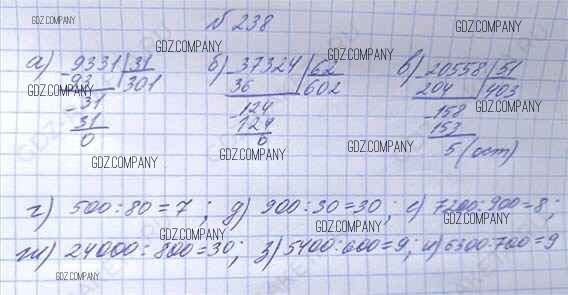 № 238
GDZ.COMPANY GDZ.COMPANY
GDZ.COMPANY GDZ.COMPANY
а) 9331 | 31 б) 37324 | 62 в) 20558 | 51
GDZ.COMPANY GDZ.COMPANY GDZ.COMPANY
- 93 301 36 602 204 403
- 31 - 124 - 158
31 124 153
0 0 5 (ост)
GDZ.COMPANY GDZ.COMPANY GDZ.COMPANY
г) 500 : 80 = 7 ; д) 900 : 30 = 30 ; е) 7200 : 900 = 8 ;
GDZ.COMPANY GDZ.COMPANY GDZ.COMPANY
ж) 24000 : 800 = 30 ; з) 5400 : 600 = 9 ; и) 6300 : 700 = 9
GDZ.COMPANY